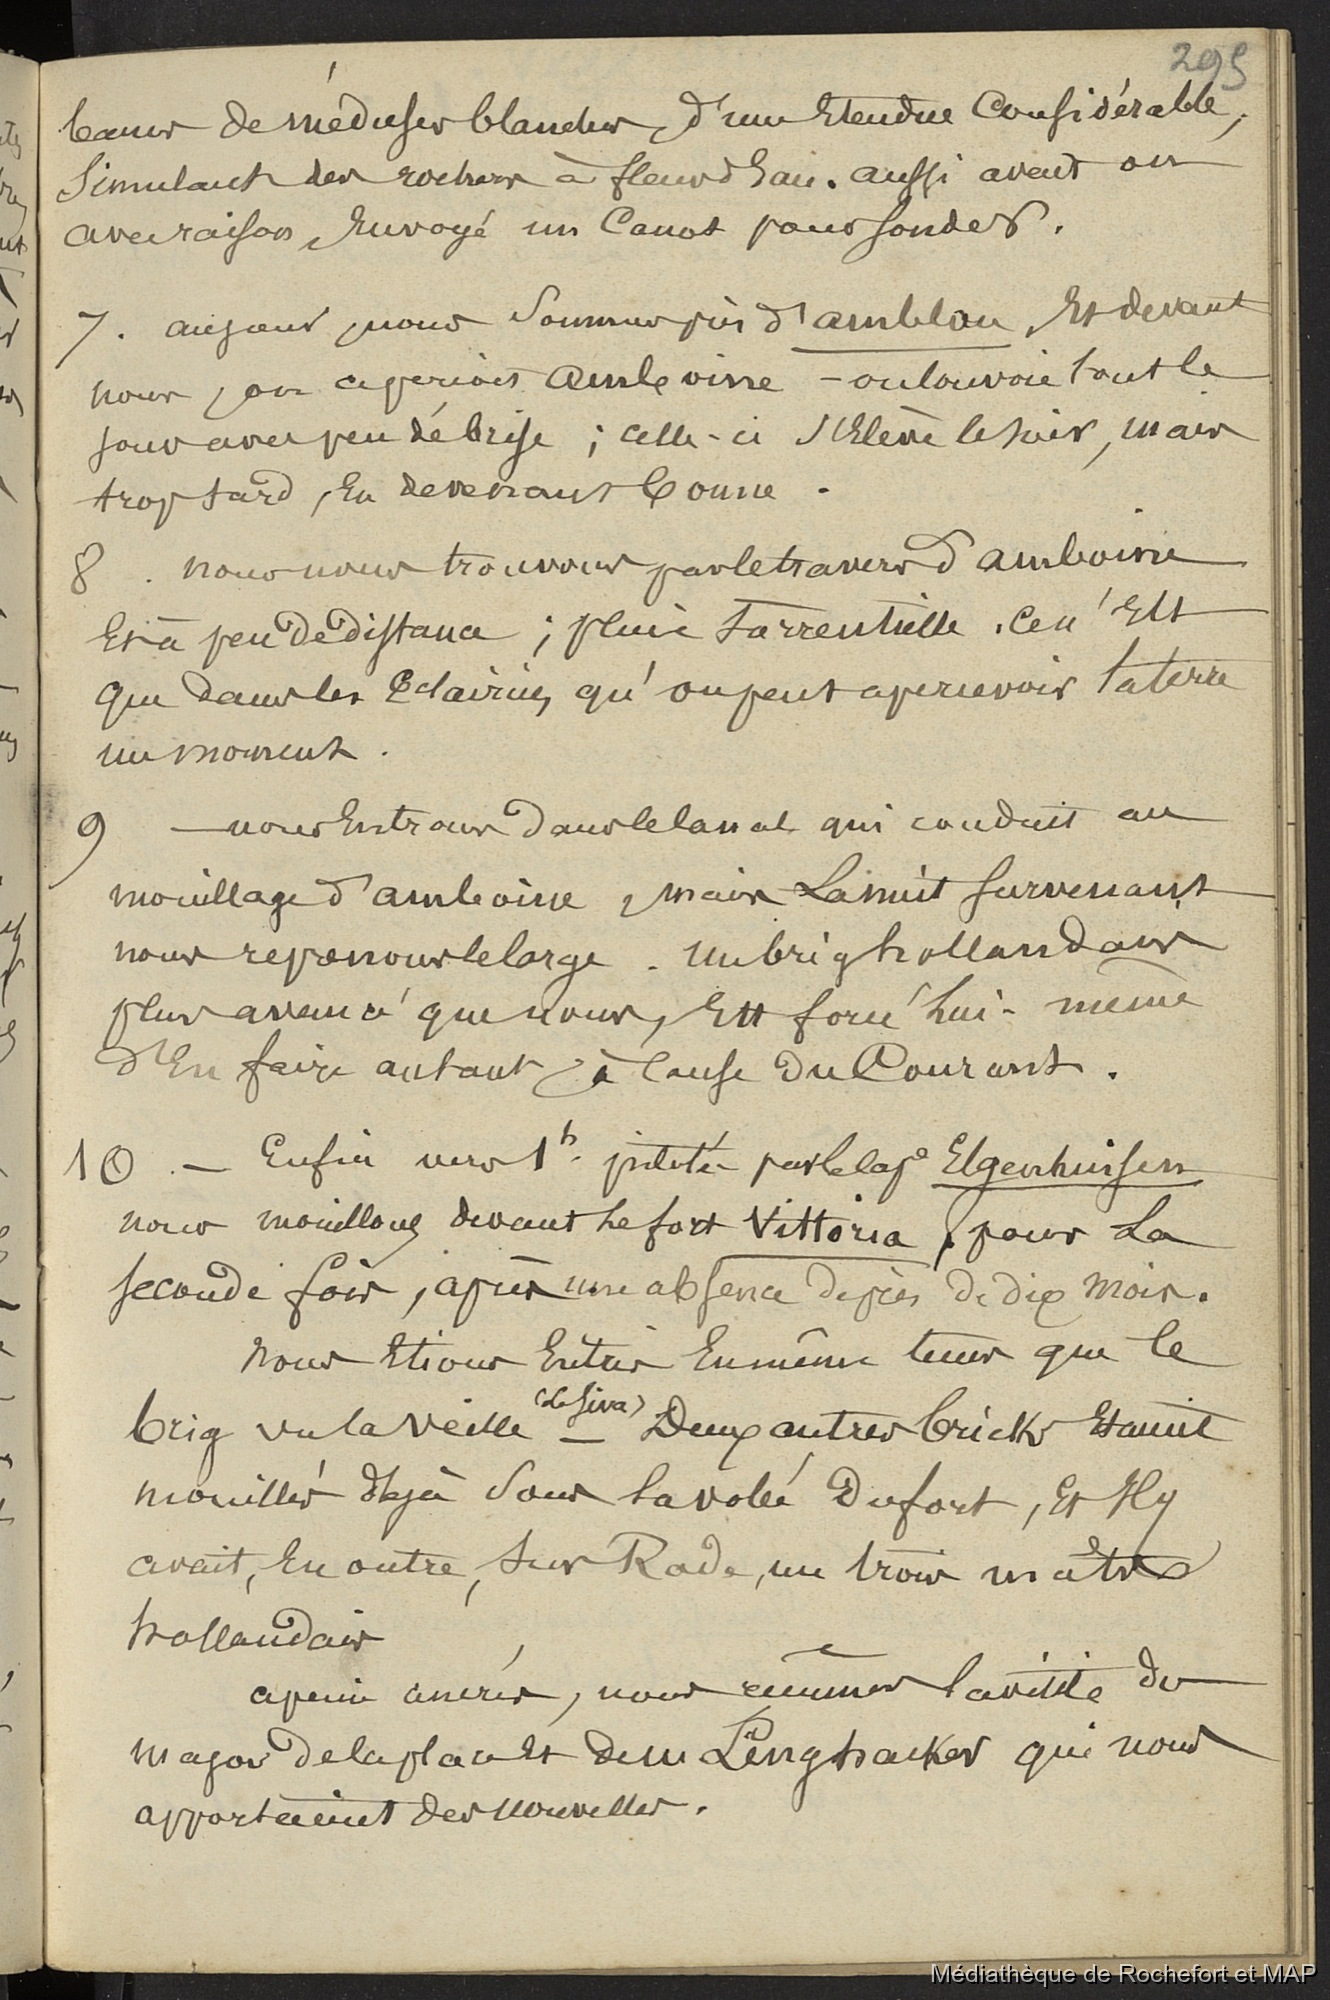 295
bancs de méduses blanches, d'une Etendue Considérable,
Simulant des rochers à fleur d'Eau. aussi avait on
avec raison, Envoyé un Canot pour sonder.
7. au jour, nous Sommes près d'amblou, Et devant
nous, on aperçoit Amboine – on louvoie tout le
jour avec peu de brise ; celle-ci s'Elève le soir, mais
trop tard, En devenant bonne.
8. nous nous trouvons par le travers d'amboine
Et à peu de distance ; pluie torrentielle. Ce n'Est
que dans les Eclaircies, qu'on peut apercevoir la terre
un moment.
9 – nous Entrons dans le canal qui conduit au
mouillage d'amboine, mais La nuit survenant
nous reprenons le large. un brig hollandais
plus avancé que nous, Est forcé lui-même
d'En faire autant, à cause du Courant.
10 – Enfin vers 1h. piloté par le cape Elgenhuisen
nous mouillons devant Le fort Vittoria, pour La
seconde fois, après une absence de près de dix mois.
Nous Etions Entrés En même tems que le
brig vu la veille (Le Siva) – Deux autres bricks Etaient
mouillés déjà Sous la volée du fort, Et Il y
avait, En outre, sur Rade, un trois mâts
hollandais
a peine ancrés, nous reçûmes la visite du
major de la place Et de mr Lenghacker qui nous
apportaient des nouvelles.
Médiathèque de Rochefort et MAP